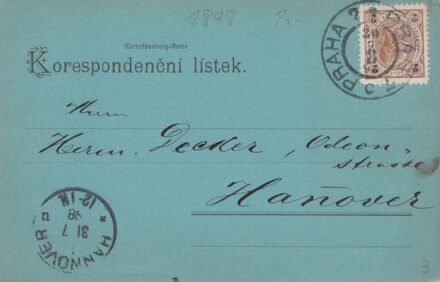 1898
Correspondenz-Karte
Korespondenční lístek.
PRAHA
2
2
Herrn
Herm. Decker, Odeon-
strasse
Hanover
HANNOVER
31 7
98
12-1N.
3